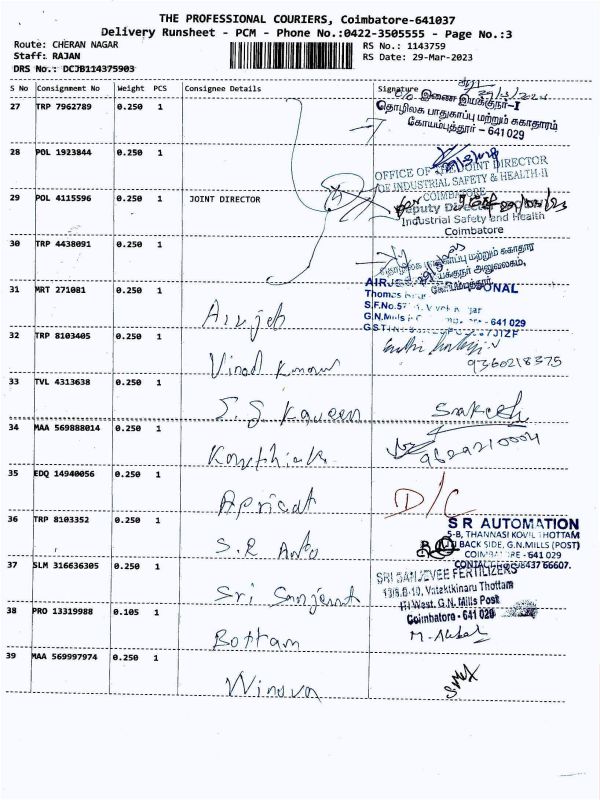 THE PROFESSIONAL COURIERS, Coimbatore-641037
Delivery Runsheet - PCM - Phone No.:0422-3505555 - Page No.:3
Route: CHERAN NAGAR RS No.: 1143759
Staff: RAJAN RS Date: 29-Mar-2023
DRS No.: DCJB114375903
S No Consignment No Weight PCS Consignee Details Signature
27 TRP 7962789 0.250 1
இணை இயக்குநர்-I
தொழிலக பாதுகாப்பு மற்றும் சுகாதாரம்
கோயம்புத்தூர் - 641 029
28 POL 1923844 0.250 1
OFFICE OF THE JOINT DIRECTOR
OF INDUSTRIAL SAFETY & HEALTH-II
COIMBATORE
29 POL 4115596 0.250 1 JOINT DIRECTOR
Deputy Director
Industrial Safety and Health
Coimbatore
30 TRP 4438091 0.250 1
தொழிலக பாதுகாப்பு மற்றும் சுகாதார
இயக்குநர் அலுவலகம்,
கோயம்புத்தூர்
31 MRT 271081 0.250 1 Airjet
Thomas
S.F.No.57
G.N.Mills - 641 029
32 TRP 8103405 0.250 1 Vinod Kumar
9360218375
33 TVL 4313638 0.250 1 S.S Kaveen Srakesh
34 MAA 569888014 0.250 1 Kowthick
9629210004
35 EDQ 14940056 0.250 1 Apricot D/C
36 TRP 8103352 0.250 1 S.R Auto
S R AUTOMATION
5-B, THANNASI KOVIL THOTTAM
BACK SIDE, G.N.MILLS (POST)
COIMBATORE - 641 029
37 SLM 316636305 0.250 1 Sri Sanjeevi
SRI SANJEEVEE FERTILIZERS
Vatakkinaru Thottam
West, G.N. Mills Post
Coimbatore - 641 029
38 PRO 13319988 0.105 1 Bottam
39 MAA 569997974 0.250 1 Winova